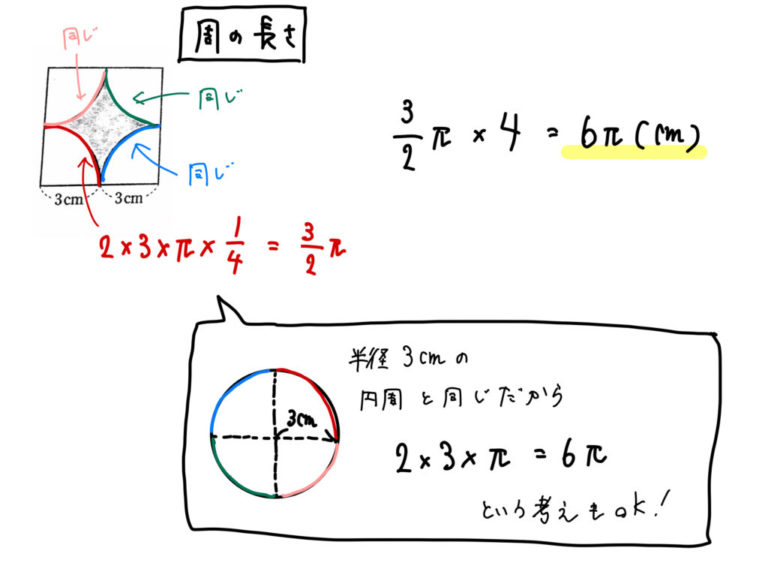 周の長さ
同じ
同じ
同じ
3cm 3cm
2×3×π×1/4 = 3/2π
3/2π×4 = 6π(cm)
半径3cmの
円周と同じだから
3cm
2×3×π = 6π
という考えもOK!